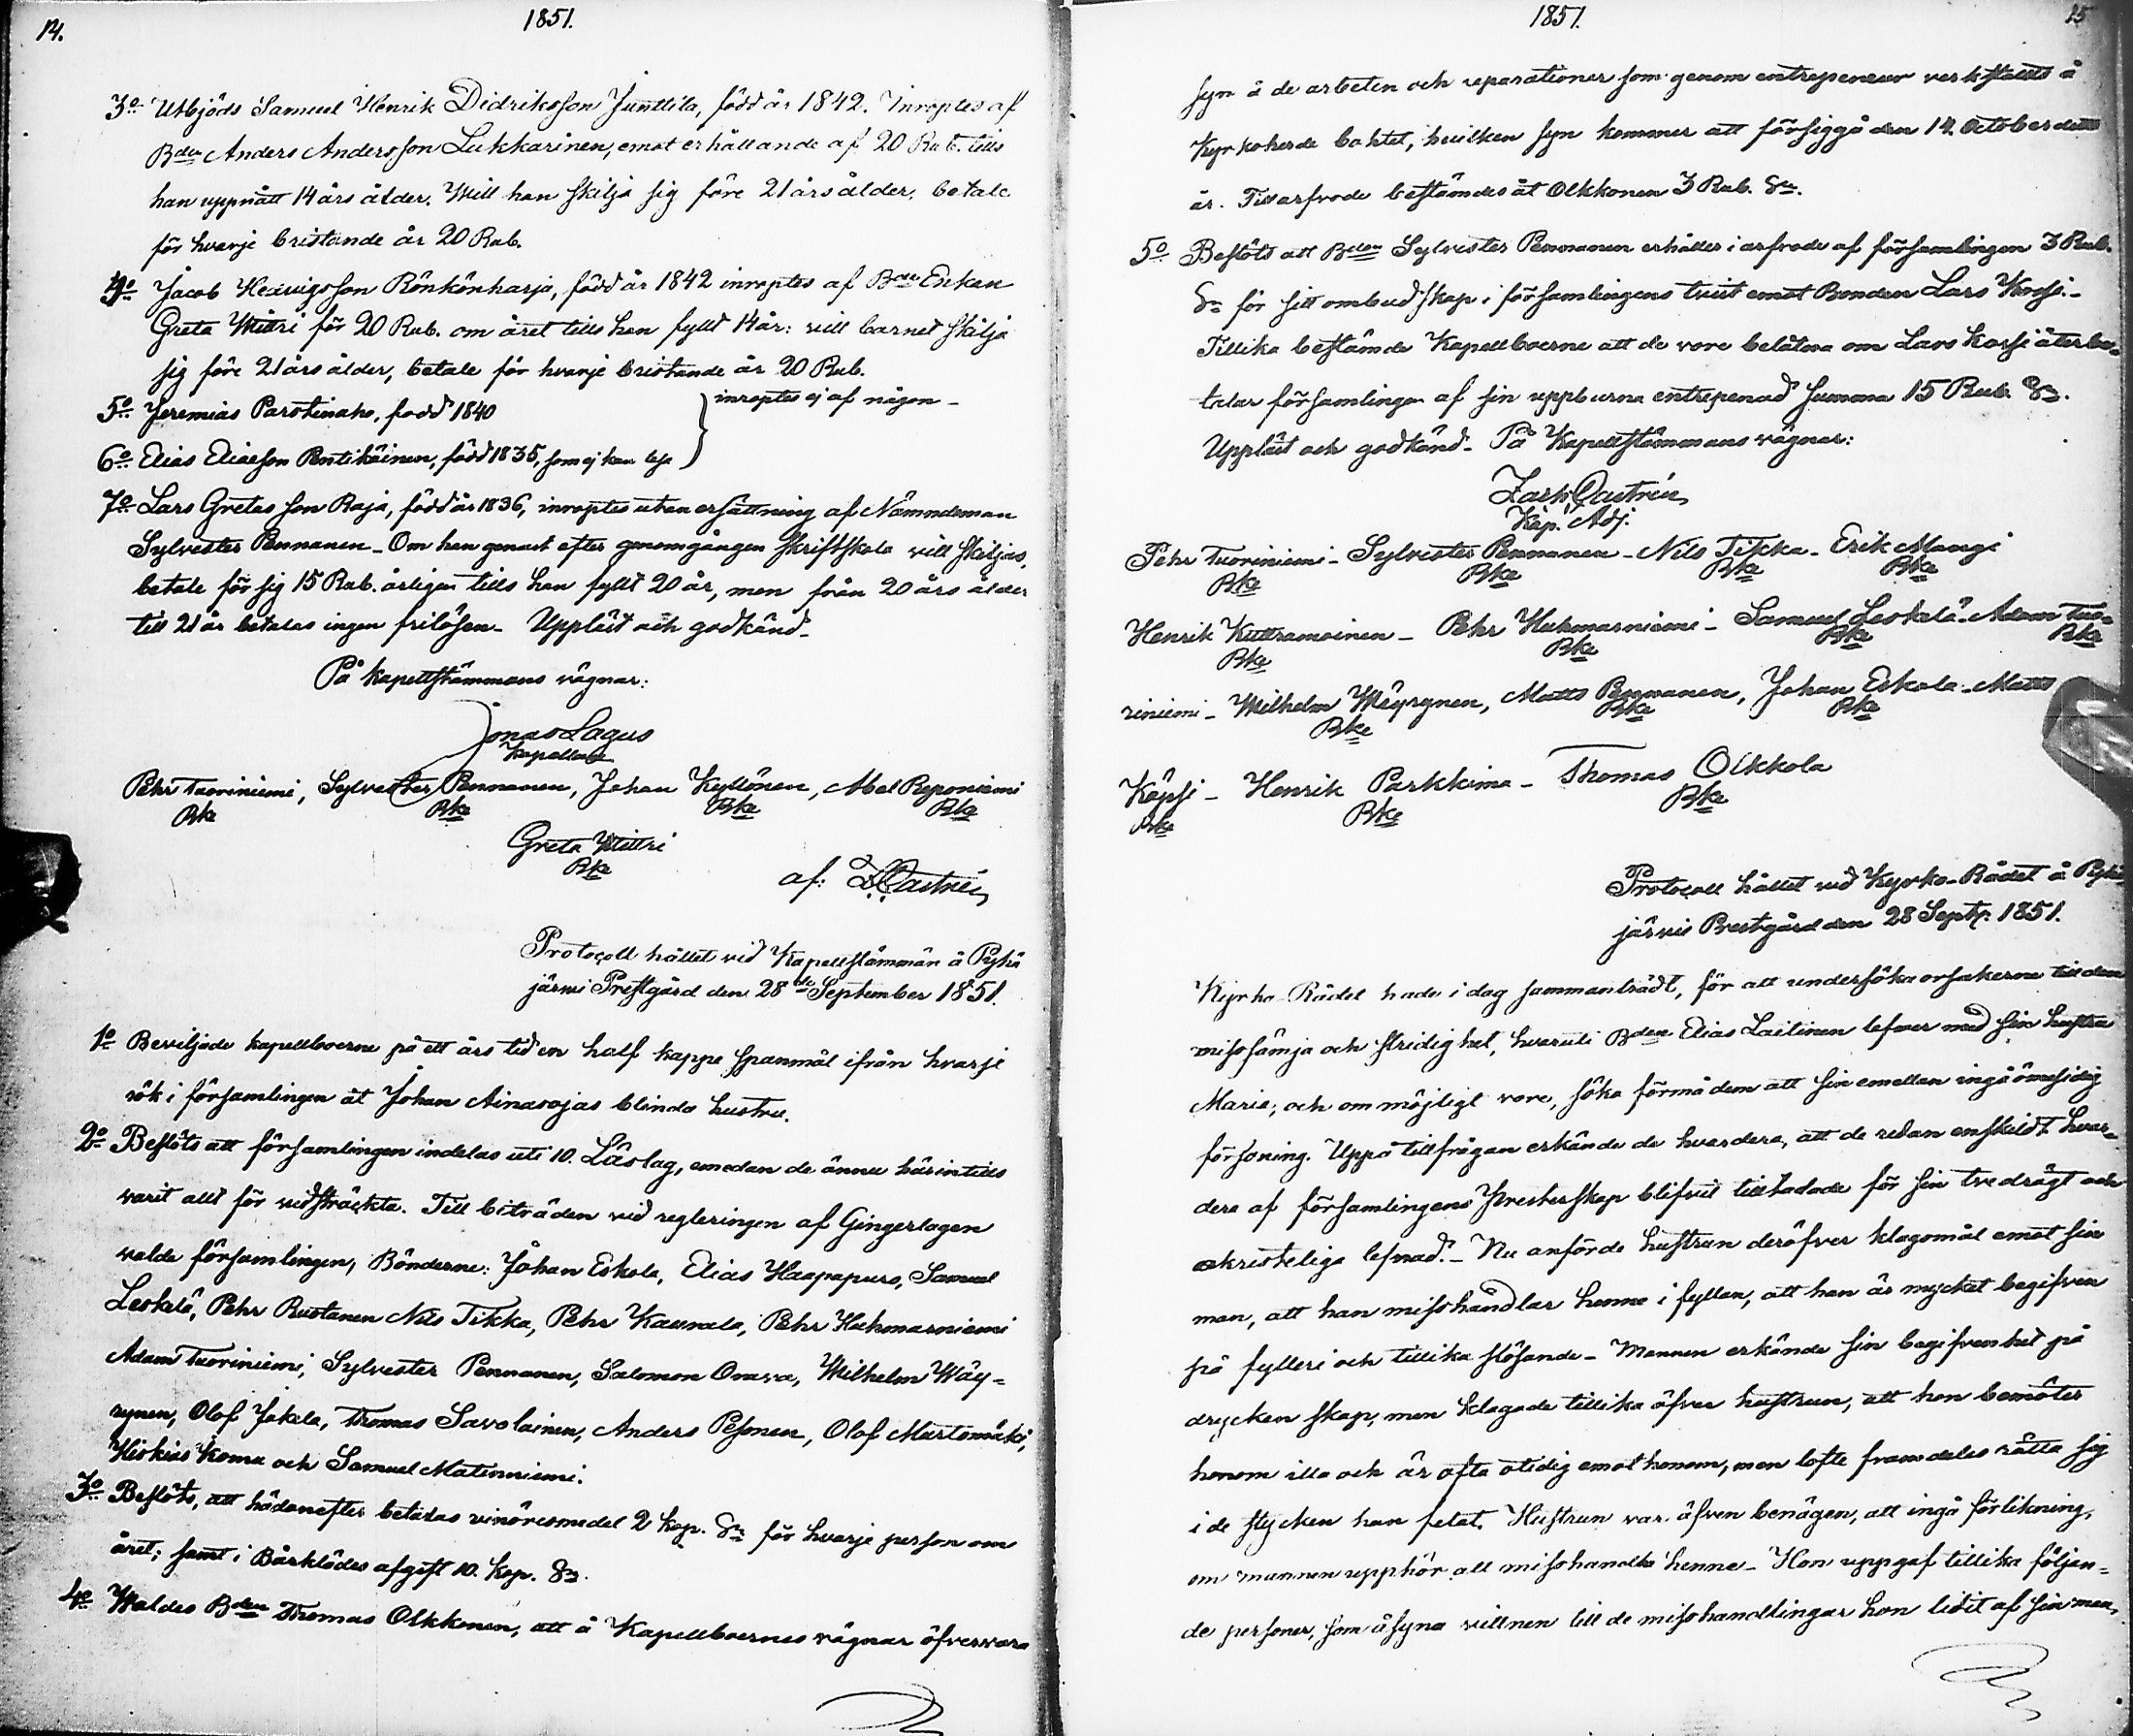 14.
1851.
3o Utbjöds Samuel Henrik Didriksson Junttila, född år 1842. Inroptes af
Bden Anders Andersson Lukkarinen, emot erhållande af 20 Rub. tills
han uppnått 14 års ålder. Will han skilja sig före 21 års ålder, betale
för hvarje bristande år 20 Rub.
4o Jacob Hedvigsson Rönkönharja, född år 1842 inroptes af Bde Enkan
Greta Wittri för 20 Rub. om året tills han fyllt 14 år: vill barnet skilja
sig före 21 års ålder, betale för hvarje bristande år 20 Rub.
5o Jeremias Parstinaho, född 1840
inroptes ej af någon -
6o Elias Eliasson Pentikäinen, född 1835, som ej kan leja
7o Lars Gretasson Raja, född år 1836, inroptes utan ersättning af Nämndeman
Sylvester Pennanen - Om han genast efter genomgången Skriftskola vill skiljas,
betale för sig 15 Rub. årligen tills han fyllt 20 år, men från 20 års ålder
till 21 år betalas ingen frilösen - Uppläst och godkänd -
På kapellstämmans vägnar:
Jonas Lagus
Kapellan
Pehr Tuoriniemi, Sylvester Pennanen, Johan Kyllönen, Abel Reponiemi
Bke Bke Bke Bke
Greta Wittri
Bke
af: Z. Castrén
Protocoll hållet vid Kapellstämman å Pyhä
järvi Prestgård den 28de September 1851.
1o Beviljade kapellboerne på ett års tid en half kappe spanmål ifrån hvarje
rök i församlingen åt Johan Ainasojas blinda hustru.
2o Beslöts att församlingen indelas uti 10. Läslag, emedan de ännu härintills
varit allt för vidsträckta. Till biträden vid regleringen af Gingerlagen
valde församlingen, Bönderne: Johan Eskola, Elias Haapapuro, Samuel
Leskelä, Pehr Rustanen Nils Tikka, Pehr Kaunala, Pehr Huhmarniemi
Adam Tuoriniemi, Sylvester Pennanen, Salomon Orava, Wilhelm Wäy-
rynen, Olof Jokela, Thomas Savolainen, Anders Pesonen, Olof Martomäki,
Hiskias Komu och Samuel Matinniemi.
3o Beslöts, att hädanefter betalas vinöresmedel 2 kop. Sr för hvarje person om
året; samt i Bårklädes afgift 10. kop. Sr.
4o Waldes Bden Thomas Olkkonen, att å Kapellboernes vägnar öfvervara
1851.
15
syn å de arbeten och reparationer som genom entrepreneur verkställts å
Kyrkoherde bohlet, hvilken syn kommer att försiggå den 14 October detta
år. Till arfvode bestämdes åt Olkkonen 3 Rub. Sr.
5o Beslöts att Bden Sylvester Pennanen erhåller i arfvode af församlingen 3 Rub.
Sr för sitt ombudskap i församlingens tvist emot Bonden Lars Korsi. -
Tillika bestämde Kapellboerne att de vore belåtna om Lars Korsi återbe-
talar församlingen af sin uppburna entrepenad summa 15 Rub. Sr.
Uppläst och godkänd - På Kapellstämmans vägnar:
Zach. Castrén
Kap. Adj.
Pehr Tuoriniemi - Sylvester Pennanen - Nils Tikka - Erik Mangi
Bke Bke Bke Bke
Henrik Kuttramoinen - Pehr Huhmarniemi - Samuel Leskelä - Adam Tuo-
Bke Bke Bke Bke
riniemi - Wilhelm Wäyrynen, Matts Pennanen, Johan Eskola - Matts
Bke Bke Bke
Köpsi - Henrik Parkkima - Thomas Olkkola
Bke Bke Bke
Protocoll hållet vid Kyrko-Rådet å Pyhä
järvi Prestgård den 28 Septr. 1851.
Kyrko-Rådet hade i dag sammanträdt, för att undersöka orsakerne till den
missämja och stridighet, hvaruti Bden Elias Laitinen lefver med sin hustru
Maria; och om möjligt vore, söka förmå dem att sin emellan ingå ömsesidig
försoning. Uppå tillfrågan erkände de hvardera, att de redan enskildt hvar-
dera af församlingens Presterskap blifvit tilltalade för sin tvedrägt och
okristeliga lefnad. - Nu anförde hustrun deröfver klagomål emot sin
man, att han misshandlar henne i fyllan, att han är mycket begifven
på fylleri och tillika slösande - Mannen erkände sin begifvenhet på
dryckenskap, men klagade tillika öfver hustrun, att hon bemöter
honom illa och är ofta otidig emot honom, men lofte framdeles rätta sig
i de stycken han felat. Hustrun var äfven benägen, att ingå förlikning,
om mannen upphör att misshandla henne - Hon uppgaf tillika följan-
de personer, som åsyna vittnen till de misshandlingar hon lidit af sin man,